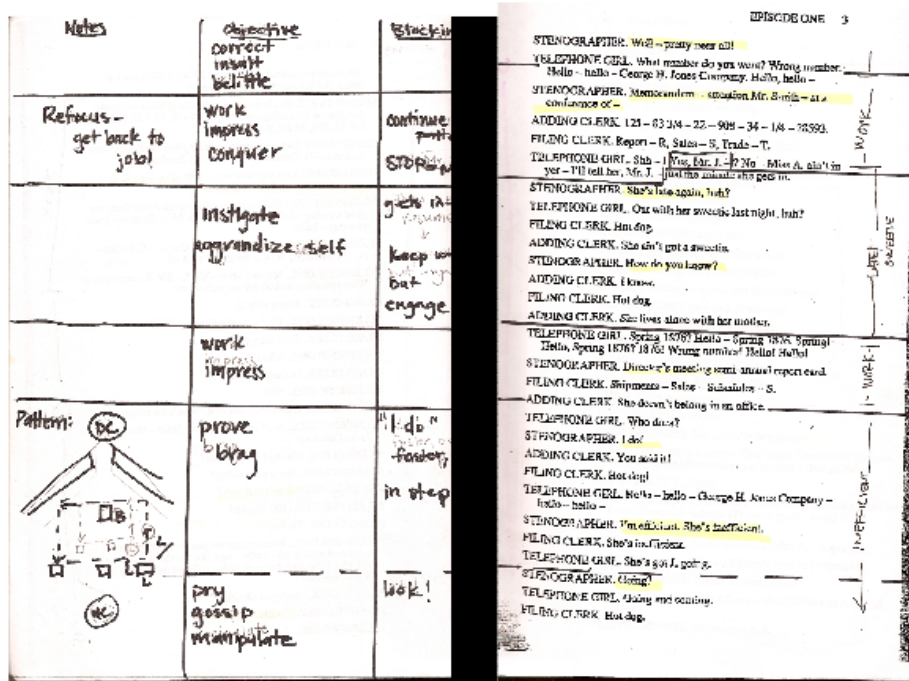 Notes
Objective
correct
insult
belittle
Refocus -
get back to
job!
work
impress
conquer
continue
instigate
aggrandize self
gets in
keep
but
engage
work
impress
Pattern:
DC
prove
brag
"I do"
faster,
in step
pry
gossip
manipulate
look!
EPISODE ONE 3
STENOGRAPHER. Well – pretty near all!
TELEPHONE GIRL. What number do you want? Wrong number.
Hello – hello – George H. Jones Company. Hello, hello –
STENOGRAPHER. Memorandum – attention Mr. Smith – at a
conference of –
ADDING CLERK. 125 – 83 3/4 – 22 – 908 – 34 – 1/4 – 28593.
FILING CLERK. Report – R, Sales – S, Trade – T.
TELEPHONE GIRL. Shh – ! Yes, Mr. J. – ? No – Miss A. ain't in
yet – I'll tell her, Mr. J. – just the minute she gets in.
STENOGRAPHER. She's late again, huh?
TELEPHONE GIRL. Out with her sweetie last night, huh?
FILING CLERK. Hot dog.
ADDING CLERK. She ain't got a sweetie.
STENOGRAPHER. How do you know?
ADDING CLERK. I know.
FILING CLERK. Hot dog.
ADDING CLERK. She lives alone with her mother.
TELEPHONE GIRL. Spring 1876? Hello – Spring 1876. Spring!
Hello, Spring 1876? 1876! Wrong number! Hello! Hello!
STENOGRAPHER. Director's meeting semi-annual report card.
FILING CLERK. Shipments – Sales – Schedules – S.
ADDING CLERK. She doesn't belong in an office.
TELEPHONE GIRL. Who does?
STENOGRAPHER. I do!
ADDING CLERK. You said it!
FILING CLERK. Hot dog!
TELEPHONE GIRL. Hello – hello – George H. Jones Company –
hello – hello –
STENOGRAPHER. I'm efficient. She's inefficient.
FILING CLERK. She's inefficient.
TELEPHONE GIRL. She's got J. going.
STENOGRAPHER. Going?
TELEPHONE GIRL. Going and coming.
FILING CLERK. Hot dog.
WORK
LATE!
SWEETIE
WORK-!
INEFFICIENT